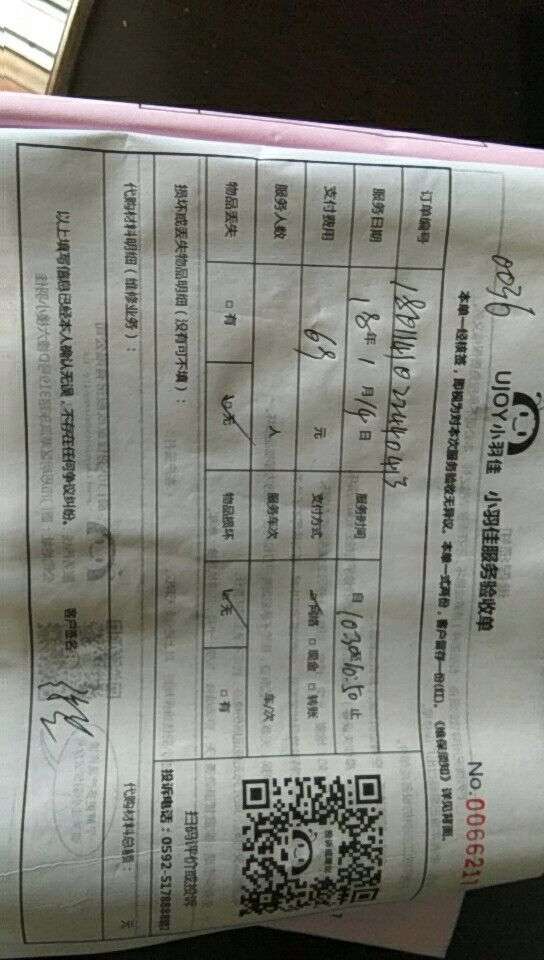 0036
UJOY小羽佳 小羽佳服务验收单 No.0066211
本单一经核签，即视为对本次服务验收无异议。本单一式两份，客户留存一份(红)。《维保须知》详见背面。
订单编号
服务日期 18年 1 月 14 日 服务时间 自 10:30至 10:50 止
支付费用 69 元 支付方式 网络 □ 现金 □ 转账
服务人数 人 服务车次 车/次
物品丢失 □ 有 无 物品损坏 无 □ 有
扫码评价或投诉
损坏或丢失物品明细（没有可不填）：
投诉电话：0592-5178888
代购材料明细（维修业务）：
代购材料总额： 元
以上填写信息已经本人确认无误，不存在任何争议纠纷。 客户签名：